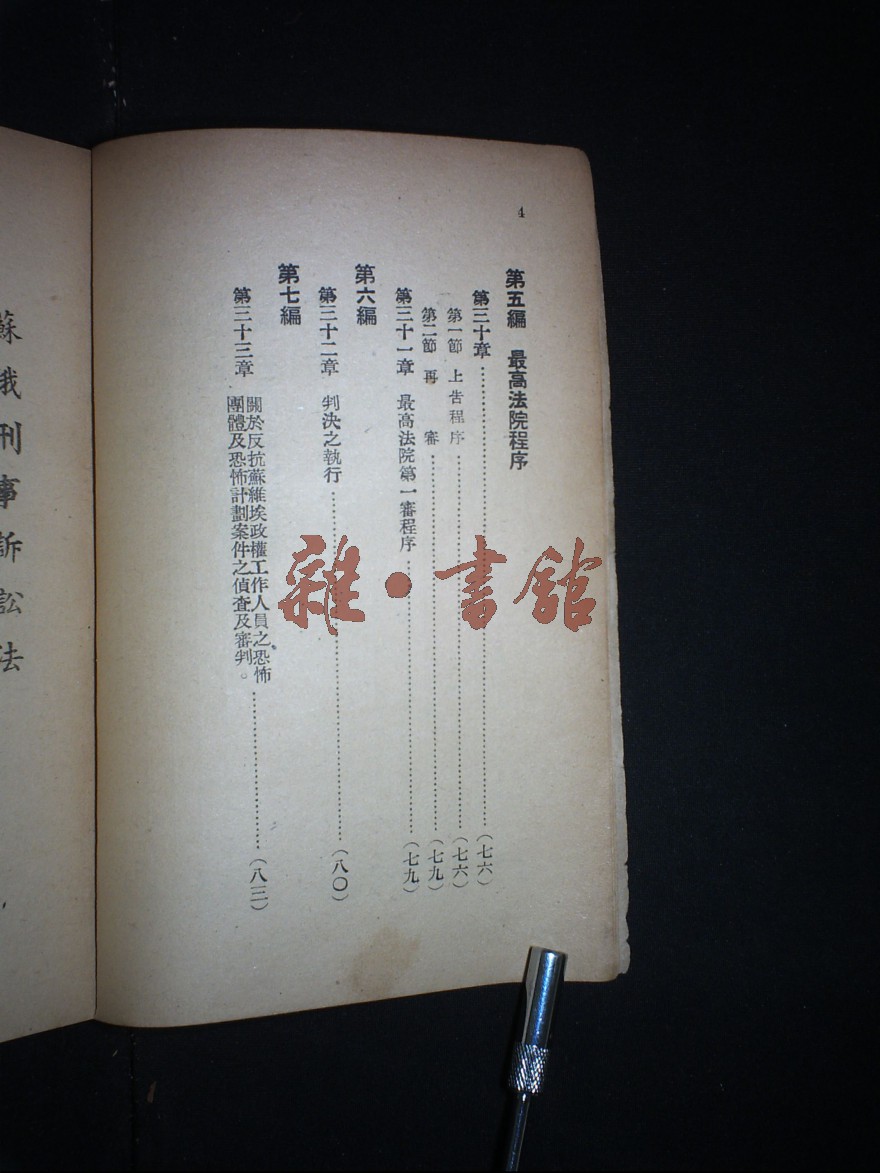 4
第五編　最高法院程序
第三十章……(七六)
第一節　上告程序……(七六)
第二節　再　審……(七九)
第三十一章　最高法院第一審程序……(七九)
第六編
第三十二章　判決之執行……(八〇)
第七編
第三十三章　關於反抗蘇維埃政權工作人員之恐怖
團體及恐怖計劃案件之偵查及審判。……(八三)
蘇俄刑事訴訟法
雜·書館